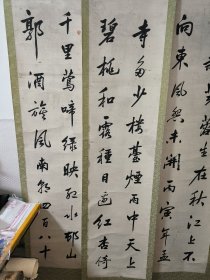 千里鶯啼綠映紅水邨山
郭酒旗風南朝四百八十
寺多少樓臺煙雨中天上
碧桃和露種日邊紅杏倚
蓉生在秋江上不
向東風怨未開丙寅孟